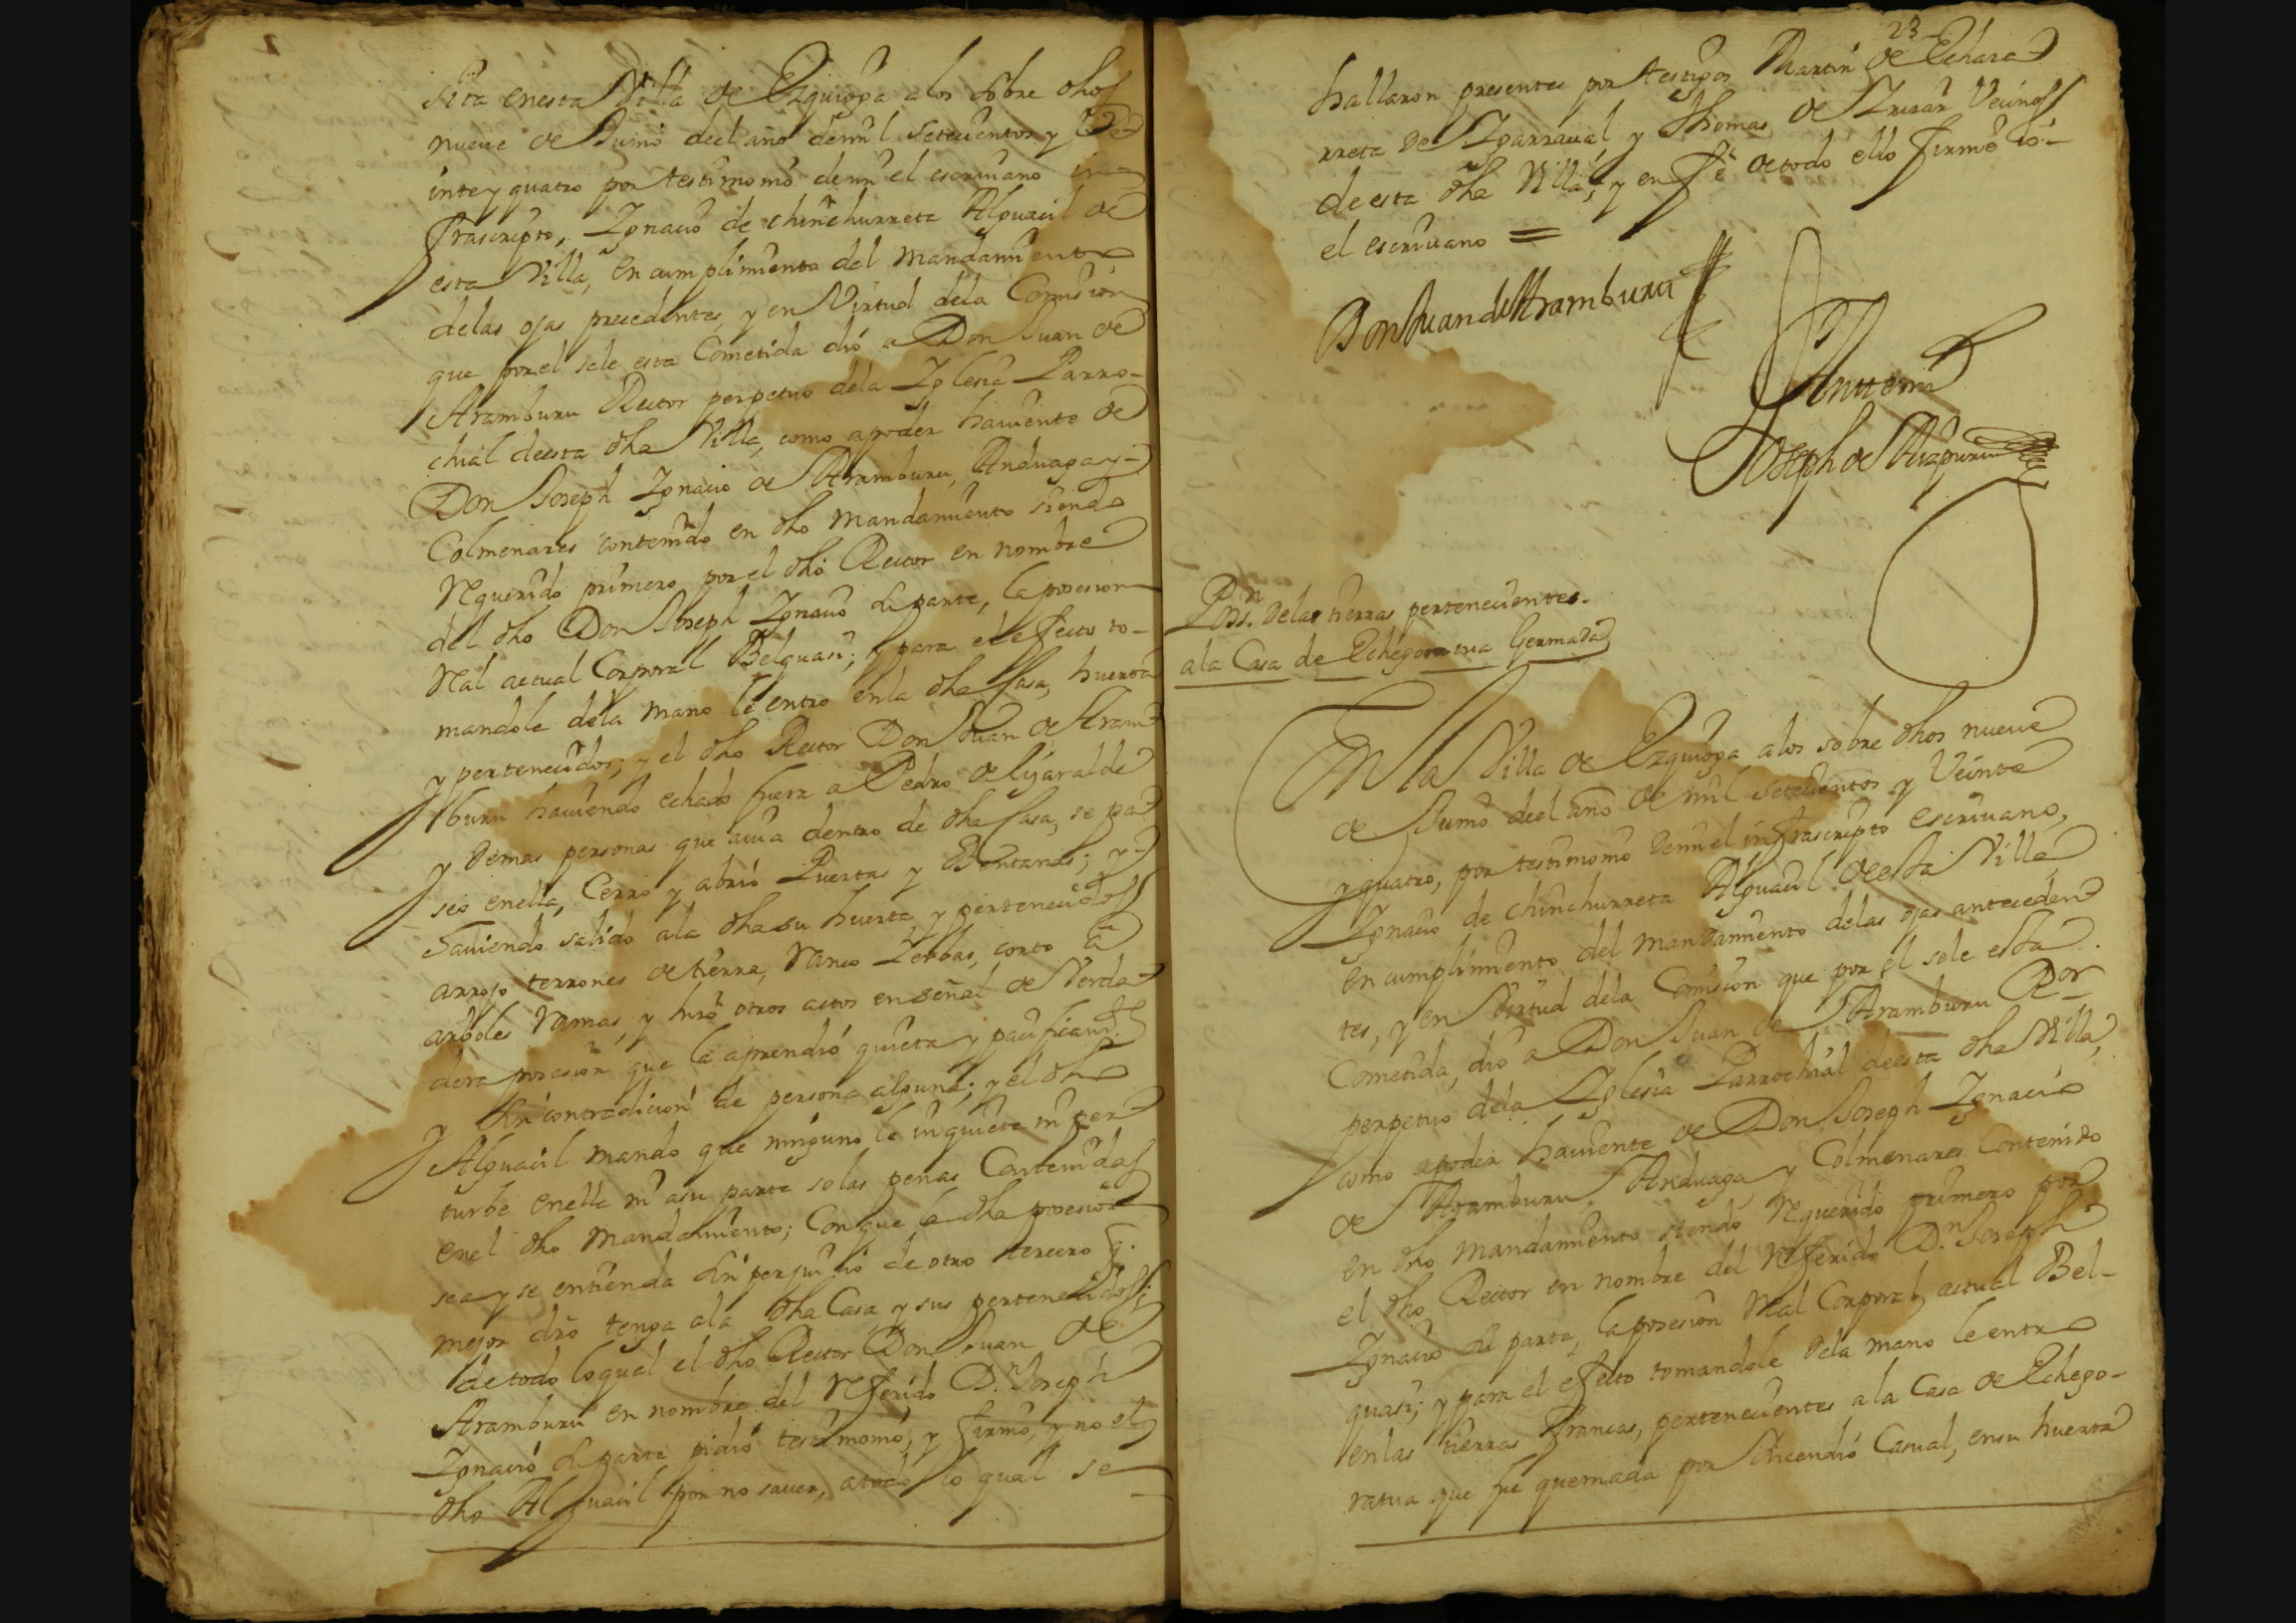 2
sita enesta Villa de Ezquioga alos sobre dhos
nueve de Junio del año demil Setecientos y Ve
inte y quatro por testimonio demi el escriuano in
frascripto, Ygnacio de chinchurreta Alguacil de
esta Villa, en cumplimiento del mandamiento
delas ojas precedentes, y en Virtud dela Comision
que por el sele esta Cometida dió a Don Juan de
Aramburu Rector perpetuo dela Yglesia Parro-
chial deesta dha Villa, como apoder hauiente de
Don Joseph Ygnacio de Aramburu, Anduaga y
Colmenares contenido en dho mandamiento siendo
Requerido primero por el dho Rector en nombre
del dho Don Joseph Ygnacio su parte, la posesion
Real actual Corporal Belquasi; y para el efecto to-
mandole dela mano le entro enla dha Casa, huerta
y pertenecidos; y el dho Rector Don Juan de Aram
buru hauiendo echado fuera a Pedro de Lizaralde
y demas personas que auia dentro de dha Casa, se pa
seó enella, Cerró y abrió Puertas y Bentanas; y
hauiendo salido ala dha su huerta y pertenecidos
arrojo terrones de tierra, Ranco Yerbas, corto a
arboles Ramas, y hizo otros actos en señal de Verda
dera posesion que la aprendió quieta y pacificamte
y sin contradicion de persona alguna; y el dho
Alguacil mando que ninguno le inquiete ni per
turbe enella ni asu parte solas penas Contenidas
enel dho Mandamiento; Con que la dha posesion
sea y se entienda sin perjuicio de otro tercero q.
mejor dro tenga ala dha Casa y sus pertenecidos;
detodo loqual el dho Rector Don Juan de
Aramburu en nombre del Referido D.n Joseph
Ygnacio su parte pidió testimonio, y firmó, y no el
dho Alguacil por no sauer, atodo lo qual se
23
hallaron presentes por testigos Martin de Echaza
rreta de Ygarraual, y Thomas de Yrizar Vecinos
deesta dha Villa, y en fé detodo ello firmé io
el escriuano =
Don Juan de Aramburu
Antemi
Joseph de Aizpuru
Poss.n Delas tierras pertenecientes.
ala Casa de Echegoratua Germada
En la Villa de Ezquioga, alos sobre dhos nueve
de Junio del año de mil setecientos y Veinte
y quatro, por testimonio demi el infrascripto escriuano,
Ygnacio de chinchurreta Alguacil deesta Villa
en cumplimiento del mandamiento delas ojas anteceden
tes, y en Virtud dela Comision que por el sele esta
Cometida, dió a Don Juan de Aramburu Ror
perpetuo dela Yglesia Parrochial deesta dha Villa,
como apoder hauiente de Don Joseph Ygnacio
de Aramburu, Anduaga, y Colmenares Contenido
en dho mandamiento siendo Requerido primero por
el dho Rector en nombre del Referido D.n Joseph
Ygnacio su parte, la posesion Real Corporal actual Bel-
quasi; y para el efecto tomandole dela mano le entro
enlas tierras francas, pertenecientes ala Casa de Echego-
ratua que fue quemada por Yncendio Casual, ensu huerta